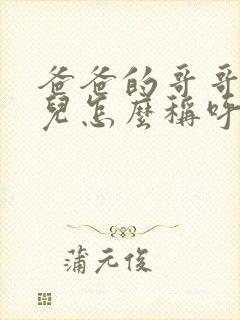 爸爸的哥哥
兒怎麼稱呼
蒲元俊